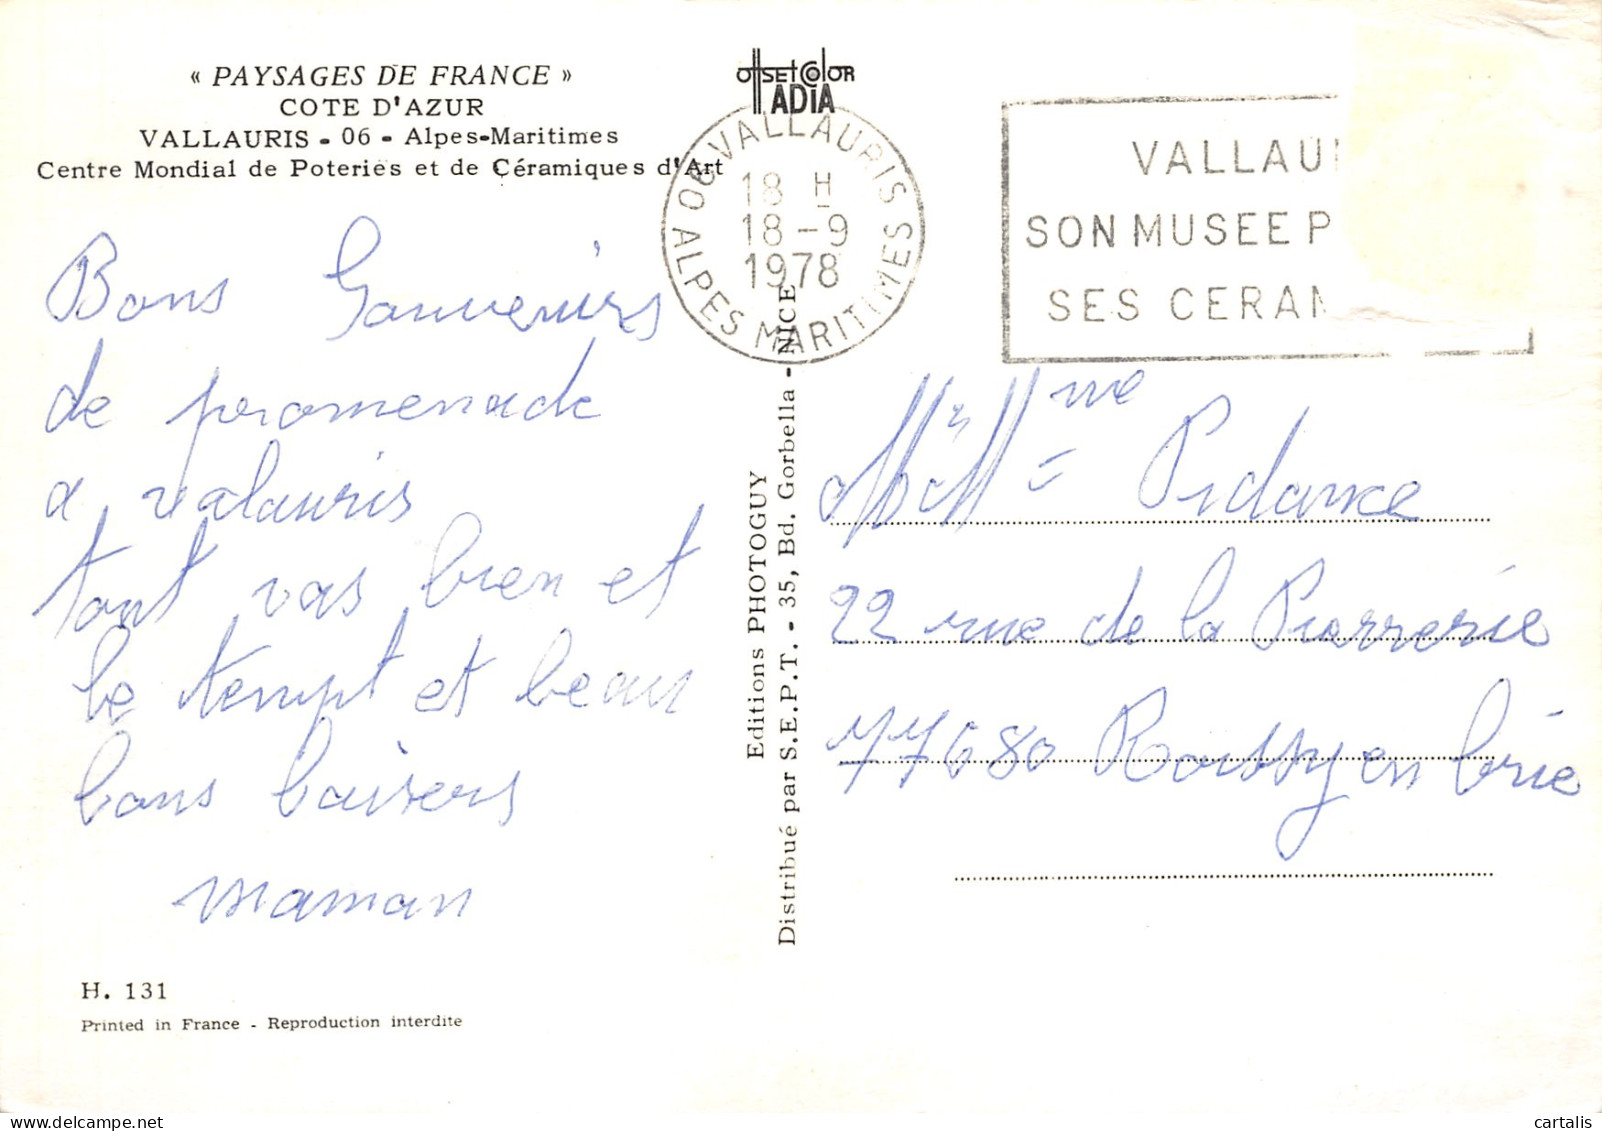 « PAYSAGES DE FRANCE »
COTE D'AZUR
VALLAURIS - 06 - Alpes-Maritimes
Centre Mondial de Poteries et de Céramiques d'Art
OffSET COlOR
ADIA
06 VALLAURIS
18 H
18-9
1978
ALPES MARITIMES
VALLAU
SON MUSEE P
SES CERAM
Bons Souvenirs
de promenade
a valauris
tout vas bien et
le tempt et beau
bons baisers
maman
Editions PHOTOGUY
Distribué par S.E.P.T. - 35, Bd. Gorbella - NICE
Mr Mme Pidance
22 rue de la Pierrerie
77680 Roissy en brie
H. 131
Printed in France - Reproduction interdite
cartalis